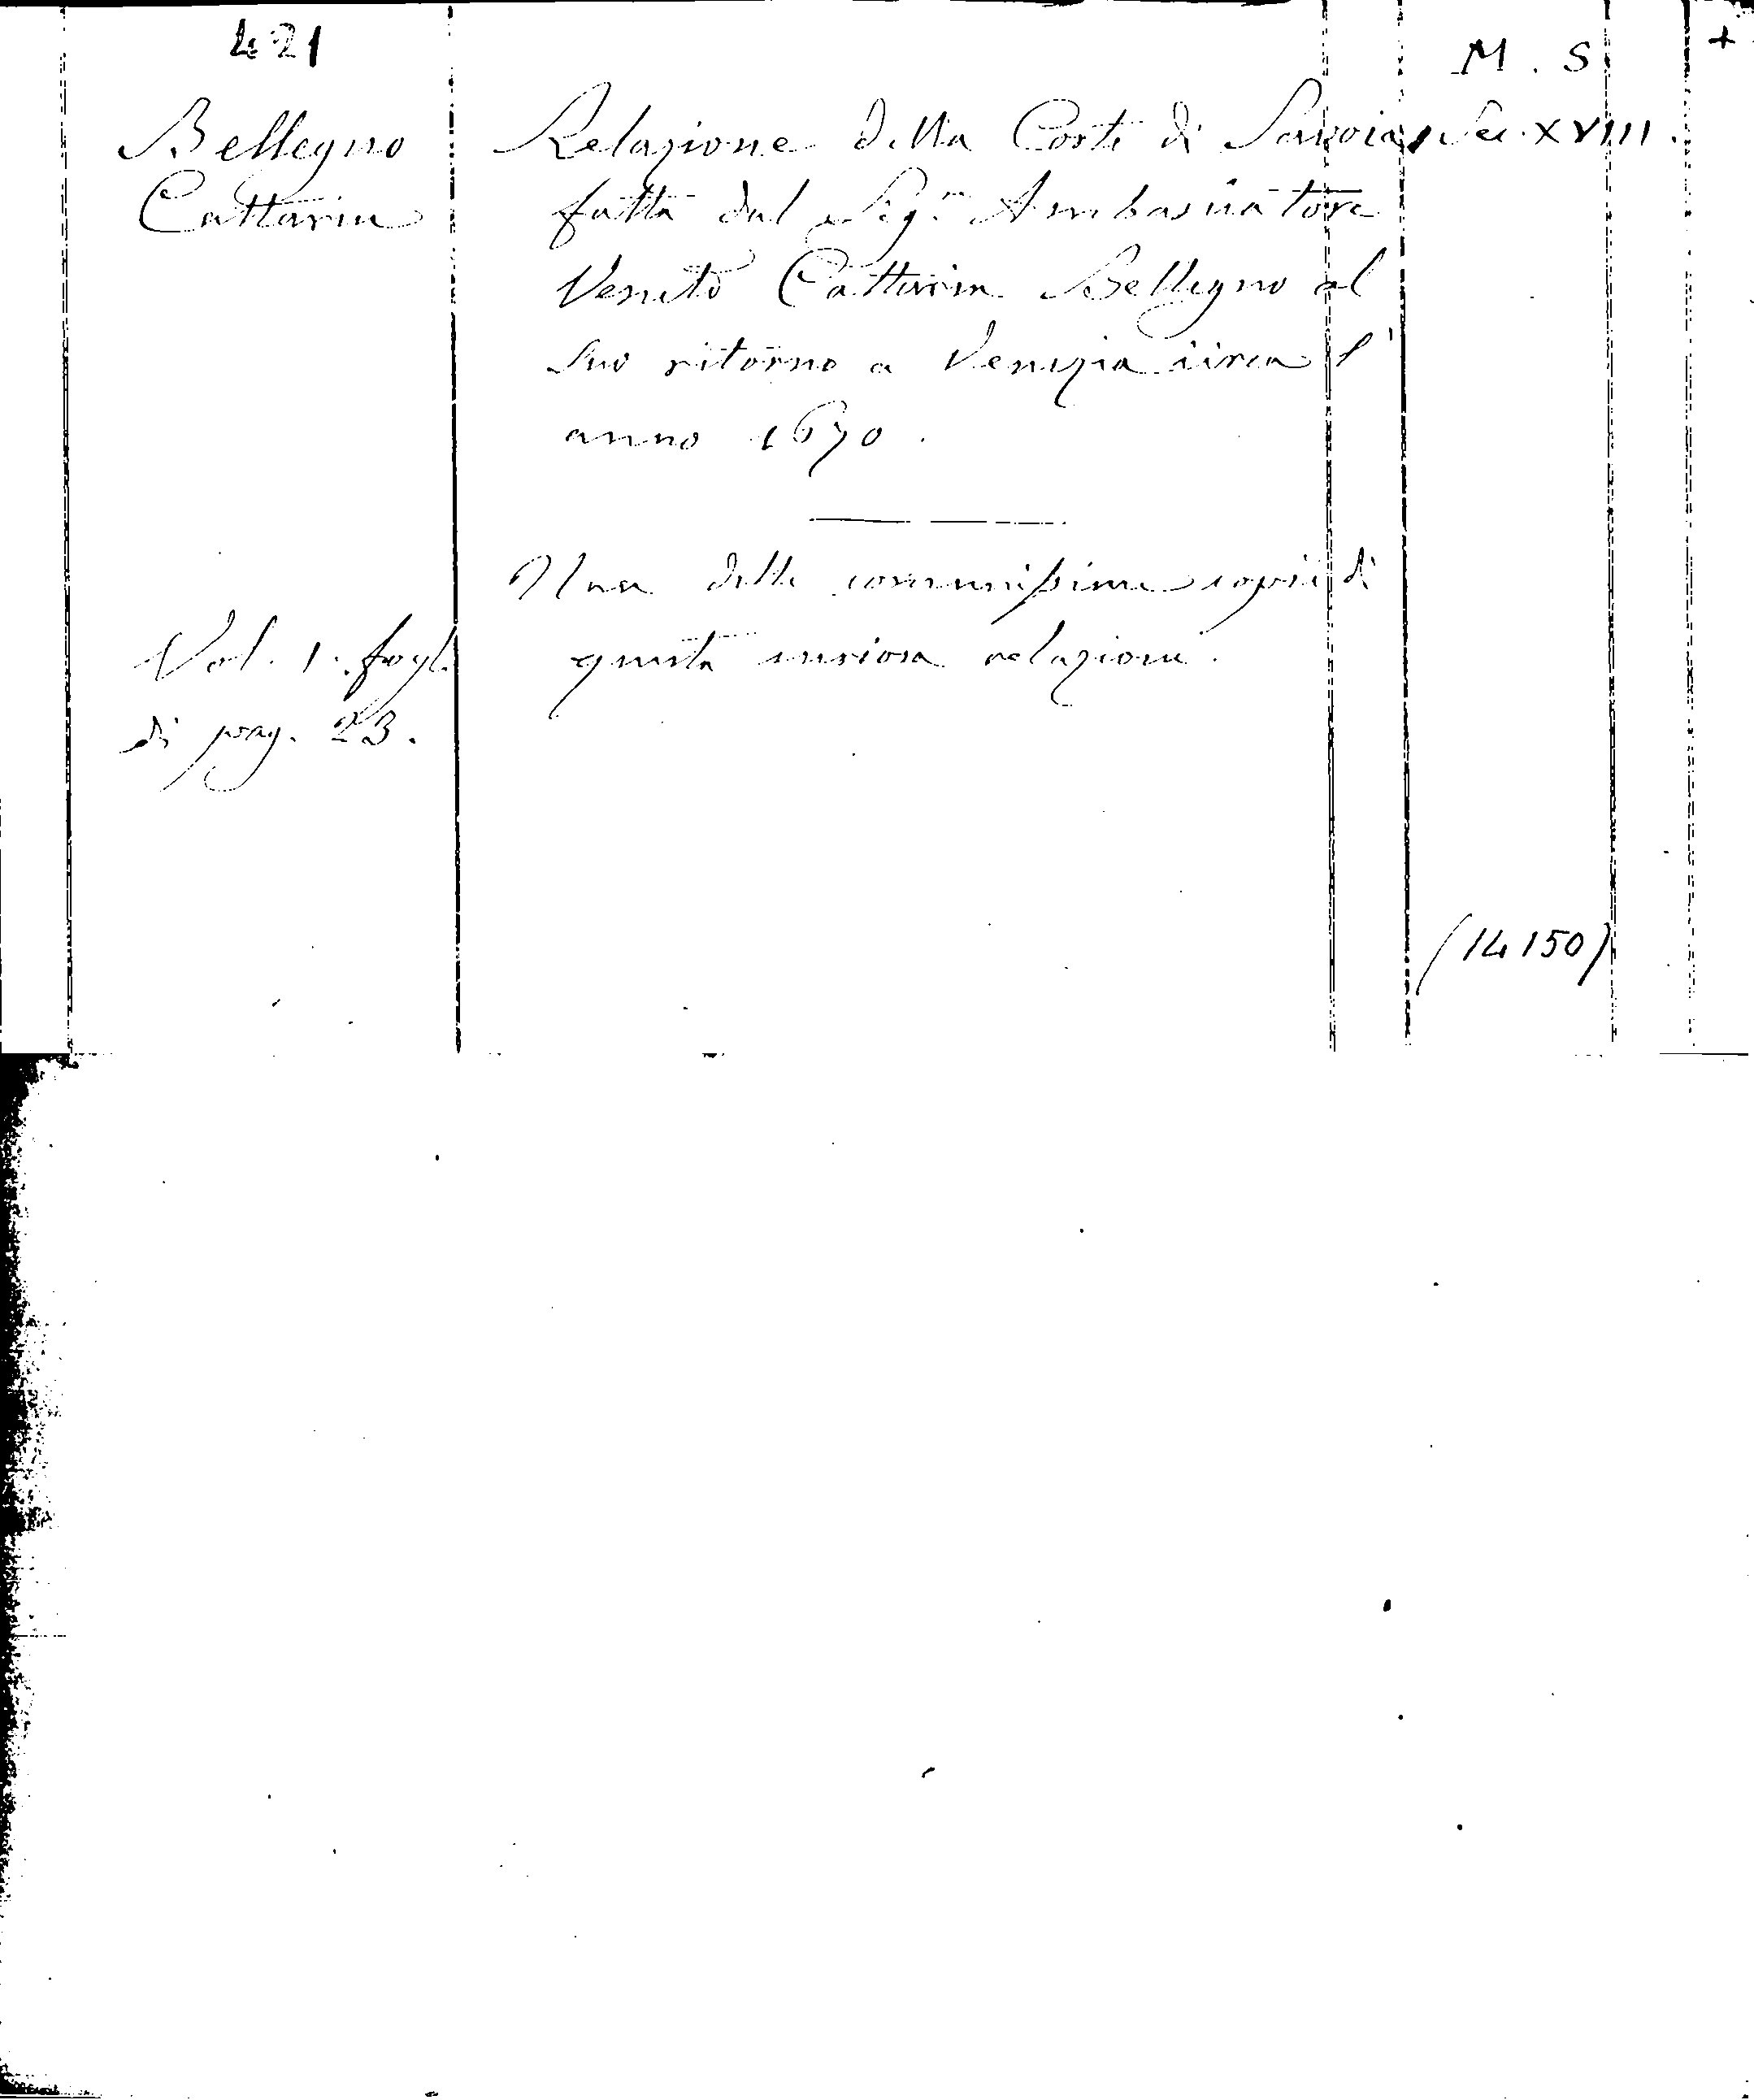 421
M. S
+
Bellegno
Cattarin
Relazione della Corte di Savoia
Sec. XVIII.
fatta dal Sigr Ambasciatore
Veneto Cattarin Bellegno al
suo ritorno a Venezia circa l'
anno 1670.
Una delle comunissime copie di
questa curiosa relazione.
Vol. 1. fogl.
di pag. 23.
(14150)